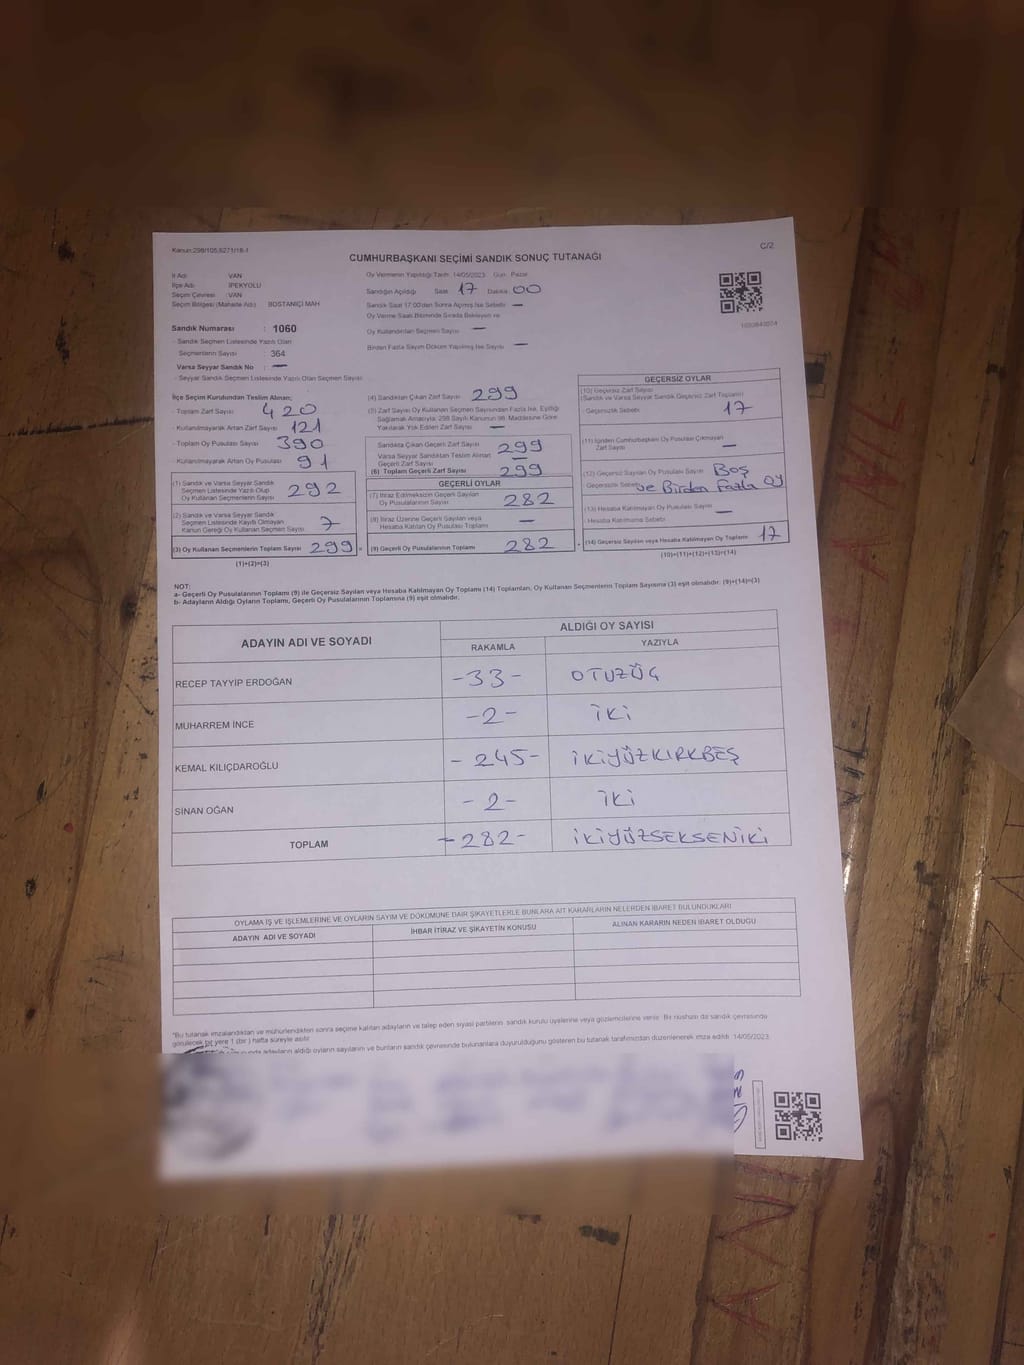 Kanun:298/105,6271/18-1
C/2
CUMHURBAŞKANI SEÇİMİ SANDIK SONUÇ TUTANAĞI
İl Adı VAN
İlçe Adı İPEKYOLU
Seçim Çevresi : VAN
Seçim Bölgesi (Mahalle Adı) BOSTANİÇİ MAH
Sandık Numarası : 1060
- Sandık Seçmen Listesinde Yazılı Olan
Seçmenlerin Sayısı : 364
Varsa Seyyar Sandık No : —
- Seyyar Sandık Seçmen Listesinde Yazılı Olan Seçmen Sayısı
Oy Vermenin Yapıldığı Tarih 14/05/2023 Gün: Pazar
Sandığın Açıldığı Saat 17 Dakika 00
Sandık Saat 17:00'den Sonra Açılmış İse Sebebi —
Oy Verme Saati Bitiminde Sırada Bekleyen ve
Oy Kullandırılan Seçmen Sayısı —
Birden Fazla Sayım Döküm Yapılmış İse Sayısı —
İlçe Seçim Kurulundan Teslim Alınan;
- Toplam Zarf Sayısı 420
- Kullanılmayarak Artan Zarf Sayısı 121
- Toplam Oy Pusulası Sayısı 390
- Kullanılmayarak Artan Oy Pusulası 91
(1) Sandık ve Varsa Seyyar Sandık
Seçmen Listesinde Yazılı Olup
Oy Kullanan Seçmenlerin Sayısı 292
(2) Sandık ve Varsa Seyyar Sandık
Seçmen Listesinde Kayıtlı Olmayan
Kanun Gereği Oy Kullanan Seçmen Sayısı 7
(3) Oy Kullanan Seçmenlerin Toplam Sayısı 299 =
(1)+(2)=(3)
(4) Sandıktan Çıkan Zarf Sayısı 299
(5) Zarf Sayısı Oy Kullanan Seçmen Sayısından Fazla İse, Eşitliği
Sağlamak Amacıyla; 298 Sayılı Kanunun 98. Maddesine Göre
Yakılarak Yok Edilen Zarf Sayısı —
Sandıkta Çıkan Geçerli Zarf Sayısı 299
Varsa Seyyar Sandıktan Teslim Alınan
Geçerli Zarf Sayısı —
(6) Toplam Geçerli Zarf Sayısı 299
GEÇERLİ OYLAR
(7) İtiraz Edilmeksizin Geçerli Sayılan
Oy Pusulalarının Sayısı 282
(8) İtiraz Üzerine Geçerli Sayılan veya
Hesaba Katılan Oy Pusulası Toplamı —
(9) Geçerli Oy Pusulalarının Toplamı 282 +
GEÇERSİZ OYLAR
(10) Geçersiz Zarf Sayısı
(Sandık ve Varsa Seyyar Sandık Geçersiz Zarf Toplamı)
- Geçersizlik Sebebi 17
(11) İçinden Cumhurbaşkanı Oy Pusulası Çıkmayan
Zarf Sayısı —
(12) Geçersiz Sayılan Oy Pusulası Sayısı Boş
Geçersizlik Sebebi ve Birden Fazla oy
(13) Hesaba Katılmayan Oy Pusulası Sayısı —
Hesaba Katılmama Sebebi
(14) Geçersiz Sayılan veya Hesaba Katılmayan Oy Toplamı 17
(10)+(11)+(12)+(13)=(14)
NOT:
a- Geçerli Oy Pusulalarının Toplamı (9) ile Geçersiz Sayılan veya Hesaba Katılmayan Oy Toplamı (14) Toplamları, Oy Kullanan Seçmenlerin Toplam Sayısına (3) eşit olmalıdır. (9)+(14)=(3)
b- Adayların Aldığı Oyların Toplamı, Geçerli Oy Pusulalarının Toplamına (9) eşit olmalıdır.
ADAYIN ADI VE SOYADI
ALDIĞI OY SAYISI
RAKAMLA YAZIYLA
RECEP TAYYİP ERDOĞAN -33- OTUZÜÇ
MUHARREM İNCE -2- İKİ
KEMAL KILIÇDAROĞLU -245- İKİYÜZKIRKBEŞ
SİNAN OĞAN -2- İKİ
TOPLAM -282- İKİYÜZSEKSENİKİ
OYLAMA İŞ VE İŞLEMLERİNE VE OYLARIN SAYIM VE DÖKÜMÜNE DAİR ŞİKAYETLERLE BUNLARA AİT KARARLARIN NELERDEN İBARET BULUNDUKLARI
ADAYIN ADI VE SOYADI İHBAR İTİRAZ VE ŞİKAYETİN KONUSU ALINAN KARARIN NEDEN İBARET OLDUĞU
*Bu tutanak imzalandıktan ve mühürlendikten sonra seçime katılan adayların ve talep eden siyasi partilerin sandık kurulu üyelerine veya gözlemcilerine verilir. Bir nüshası da sandık çevresinde
görülecek bir yere 1 (bir) hafta süreyle asılır.
adayların aldığı oyların sayılarını ve bunların sandık çevresinde bulunanlara duyurulduğunu gösteren bu tutanak tarafımızdan düzenlenerek imza edildi. 14/05/2023